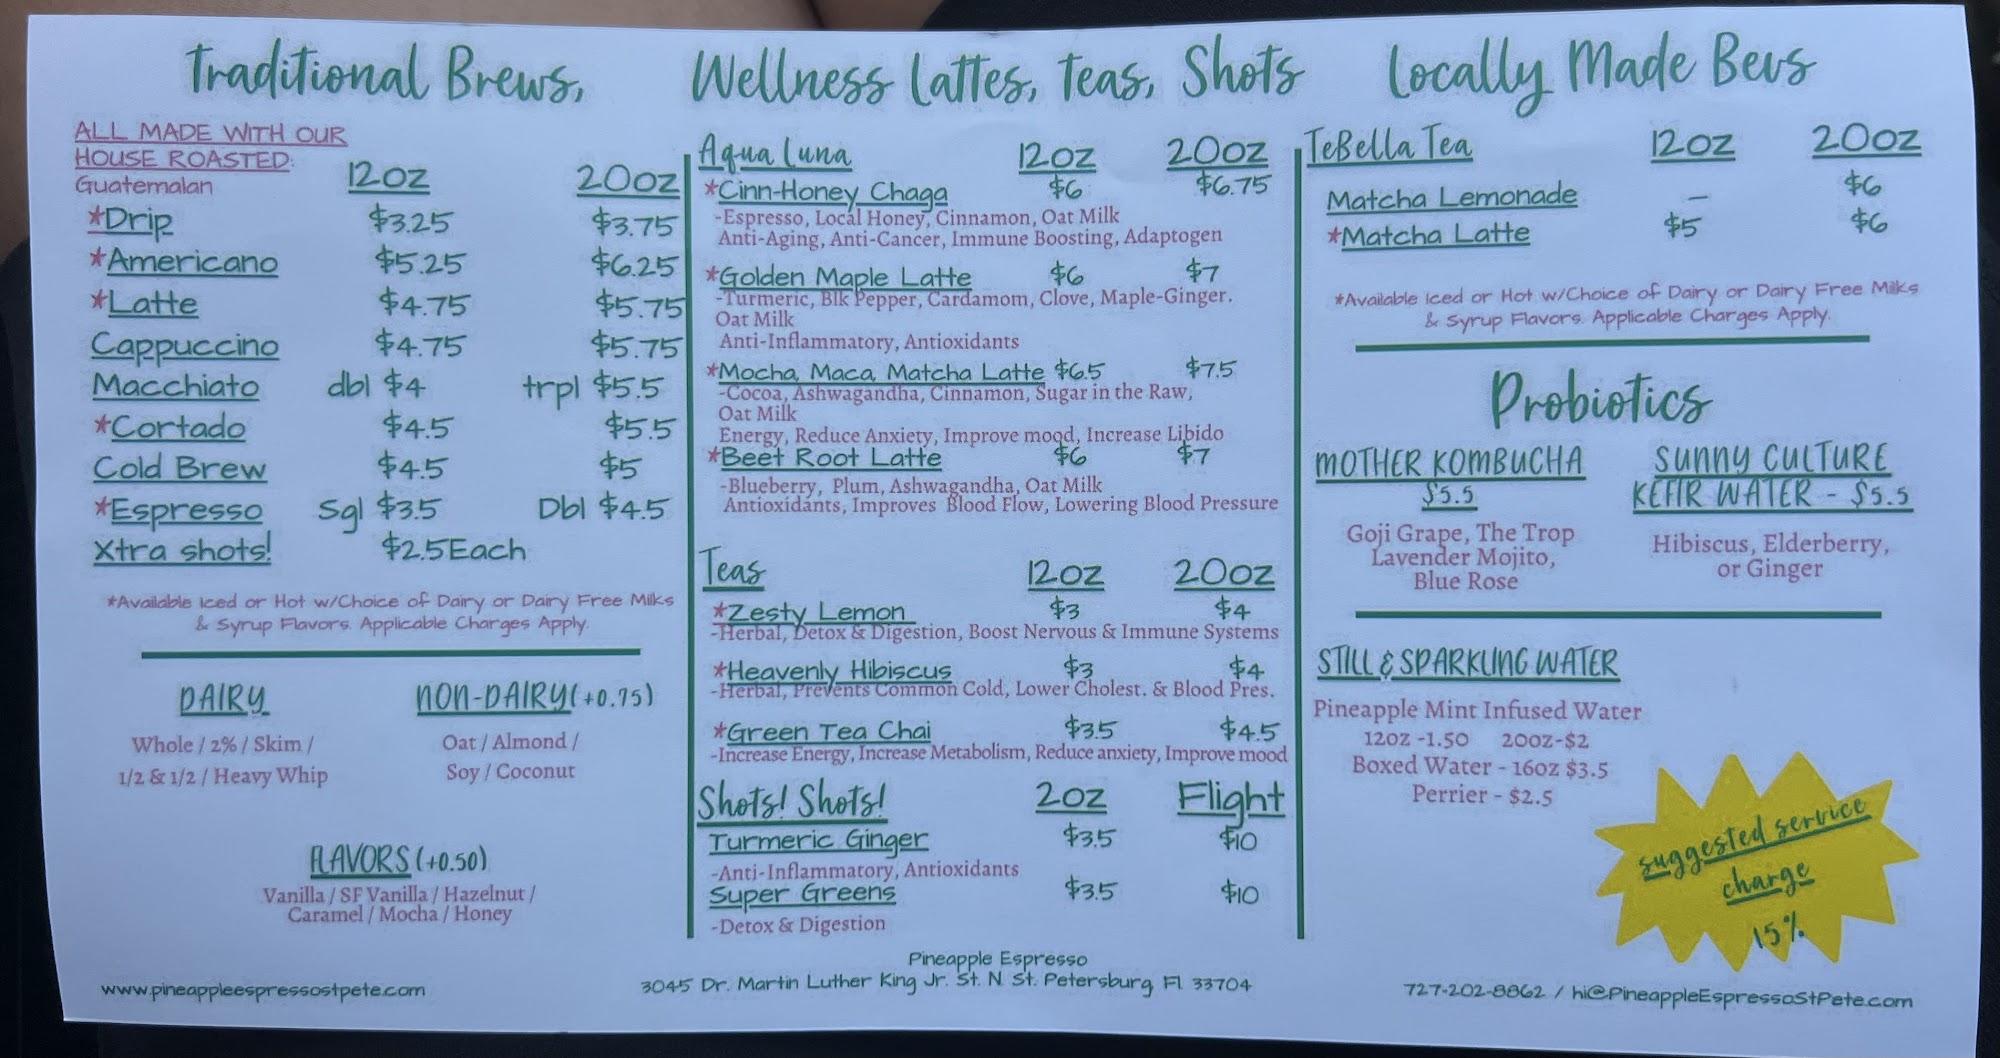 Traditional Brews,
ALL MADE WITH OUR
HOUSE ROASTED:
Guatemalan 12oz 20oz
*Drip $3.25 $3.75
*Americano $5.25 $6.25
*Latte $4.75 $5.75
Cappuccino $4.75 $5.75
Macchiato dbl $4 trpl $5.5
*Cortado $4.5 $5.5
Cold Brew $4.5 $5
*Espresso Sgl $3.5 Dbl $4.5
Xtra shots! $2.5Each
*Available Iced or Hot w/Choice of Dairy or Dairy Free Milks
& Syrup Flavors. Applicable Charges Apply.
DAIRY
Whole / 2% / Skim /
1/2 & 1/2 / Heavy Whip
NON-DAIRY(+0.75)
Oat / Almond /
Soy / Coconut
FLAVORS (+0.50)
Vanilla / SF Vanilla / Hazelnut /
Caramel / Mocha / Honey
Wellness Lattes, Teas, Shots
Aqua Luna 12oz 20oz
*Cinn-Honey Chaga $6 $6.75
-Espresso, Local Honey, Cinnamon, Oat Milk
Anti-Aging, Anti-Cancer, Immune Boosting, Adaptogen
*Golden Maple Latte $6 $7
-Turmeric, Blk Pepper, Cardamom, Clove, Maple-Ginger.
Oat Milk
Anti-Inflammatory, Antioxidants
*Mocha, Maca, Matcha Latte $6.5 $7.5
-Cocoa, Ashwagandha, Cinnamon, Sugar in the Raw,
Oat Milk
Energy, Reduce Anxiety, Improve mood, Increase Libido
*Beet Root Latte $6 $7
-Blueberry, Plum, Ashwagandha, Oat Milk
Antioxidants, Improves Blood Flow, Lowering Blood Pressure
Teas 12oz 20oz
*Zesty Lemon $3 $4
-Herbal, Detox & Digestion, Boost Nervous & Immune Systems
*Heavenly Hibiscus $3 $4
-Herbal, Prevents Common Cold, Lower Cholest. & Blood Pres.
*Green Tea Chai $3.5 $4.5
-Increase Energy, Increase Metabolism, Reduce anxiety, Improve mood
Shots! Shots! 2oz Flight
Turmeric Ginger $3.5 $10
-Anti-Inflammatory, Antioxidants
Super Greens $3.5 $10
-Detox & Digestion
Locally Made Bevs
TeBella Tea 12oz 20oz
Matcha Lemonade – $6
*Matcha Latte $5 $6
*Available Iced or Hot w/Choice of Dairy or Dairy Free Milks
& Syrup Flavors. Applicable Charges Apply.
Probiotics
MOTHER KOMBUCHA
$5.5
Goji Grape, The Trop
Lavender Mojito,
Blue Rose
SUNNY CULTURE
KEFIR WATER - $5.5
Hibiscus, Elderberry,
or Ginger
STILL & SPARKLING WATER
Pineapple Mint Infused Water
12oz -1.50 20oz-$2
Boxed Water - 16oz $3.5
Perrier - $2.5
suggested service
charge
15%
www.pineappleespressostpete.com
Pineapple Espresso
3045 Dr. Martin Luther King Jr. St. N St. Petersburg Fl 33704
727-202-8862 / hi@PineappleEspressoStPete.com